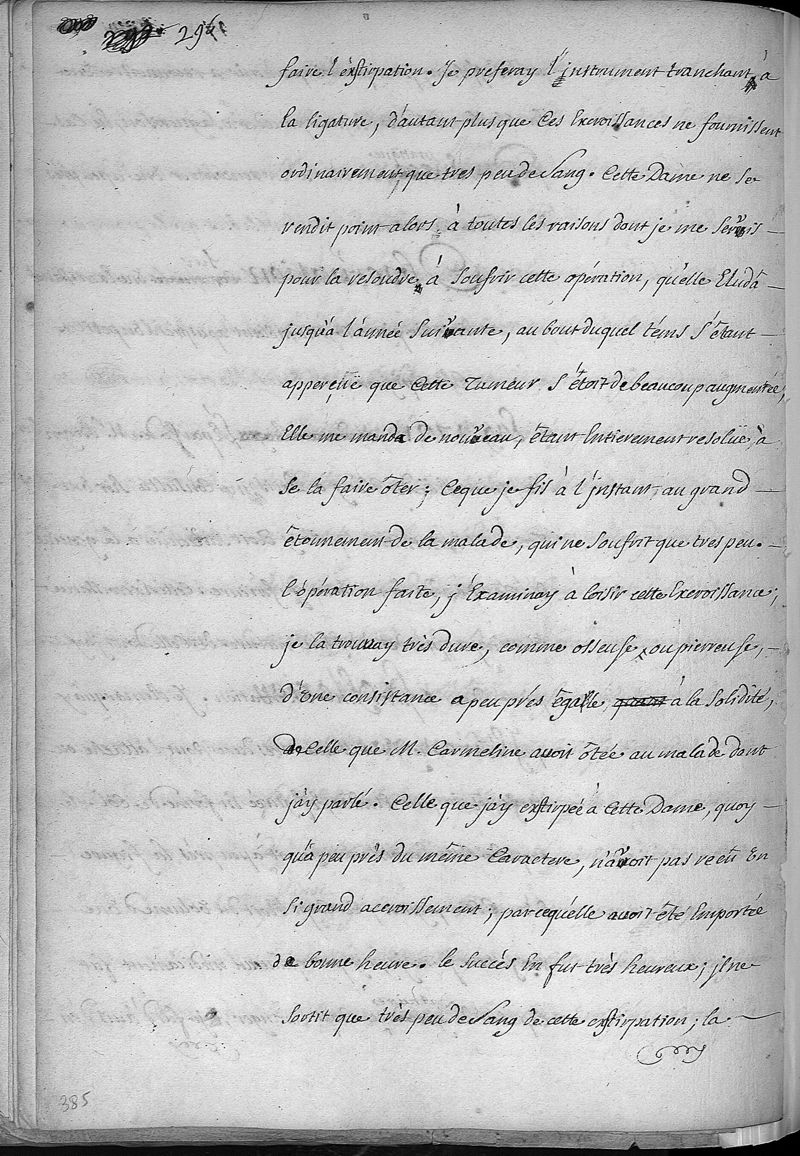 294
faire l'exstirpation. Je preferay l'jnstrument tranchant, à
la ligature, d'autant plus que Ces Excroissances ne fournissent
ordinairement, que tres peu de Sang. Cette Dame ne se
rendit point alors, à toutes les raisons dont je me servis –
pour la resoudre, à Soufrir cette opération, qu'elle Eludà
jusqu'à l'année suivante, au bout duquel téms s'étant –
apperçëüe que Cette Tumeur s'étoit de beaucoup augmentée,
Elle me manda de nouveau, étant Entierement resolüe, à
se la faire ôter; Ce que je fis à l'jnstant, au grand –
étonnement de la malade, qui ne soufrit que tres peu. –
l'opération faite, j'Examinay à loisir cette Excroissance,
je la trouvay très dure, comme osseuse, ou pierreuse, –
d'une consistance a peu prés égalle, à la solidité,
de Celle que M. Carmeline avoit ôtée au malade dont
j'ay parlé. Celle que j'ay exstirpée à Cette Dame, quoy –
qu'a peu prés du même Caractere, n'avoit pas reçû En
si grand accroissement; parcequ'elle avoit été Emportée
de bonne heure. le succés En fut très heureux; jl ne
sortit que très peu de Sang de cette exstirpation; la –
385